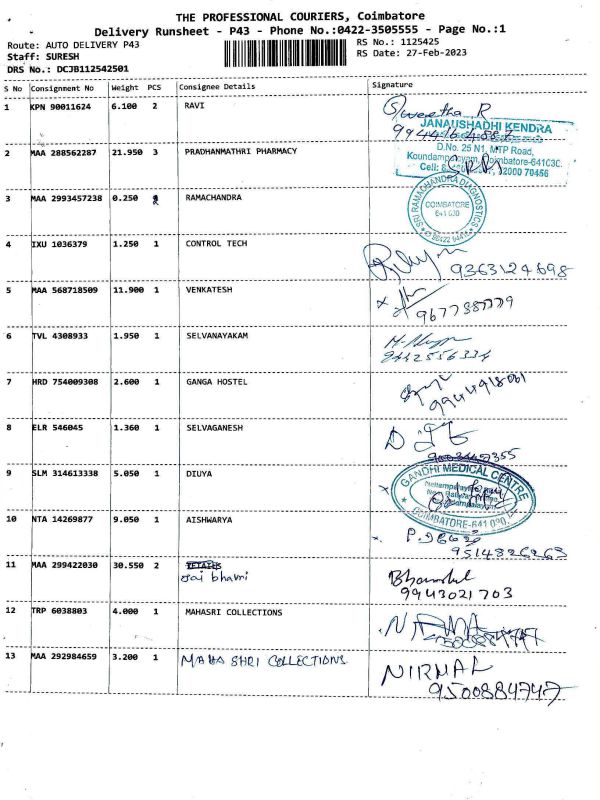 THE PROFESSIONAL COURIERS, Coimbatore
Delivery Runsheet - P43 - Phone No.:0422-3505555 - Page No.:1
Route: AUTO DELIVERY P43 RS No.: 1125425
Staff: SURESH RS Date: 27-Feb-2023
DRS No.: DCJB112542501
S No Consignment No Weight PCS Consignee Details Signature
1 KPN 90011624 6.100 2 RAVI Sweetha R
JANAUSHADHI KENDRA
D.No. 25 N1, MTP Road,
2 MAA 288562287 21.950 3 PRADHANMATHRI PHARMACY
3 MAA 2993457238 0.250 RAMACHANDRA SRI RAMACHANDRA DIAGNOSTICS
COIMBATORE
641 030
4 IXU 1036379 1.250 1 CONTROL TECH
9363124698
5 MAA 568718509 11.900 1 VENKATESH
6 TVL 4308933 1.950 1 SELVANAYAKAM
9442556334
7 HRD 754009308 2.600 1 GANGA HOSTEL
8 ELR 546045 1.360 1 SELVAGANESH
9 SLM 314613338 5.050 1 DIUYA GANDHI MEDICAL CENTRE
COIMBATORE-641 030.
10 NTA 14269877 9.050 1 AISHWARYA
9514326263
11 MAA 299422030 30.550 2
Jai bhavni
9943021703
12 TRP 6038803 4.000 1 MAHASRI COLLECTIONS
13 MAA 292984659 3.200 1 MAHA SHRI COLLECTIONS NIRMAL
9500884747